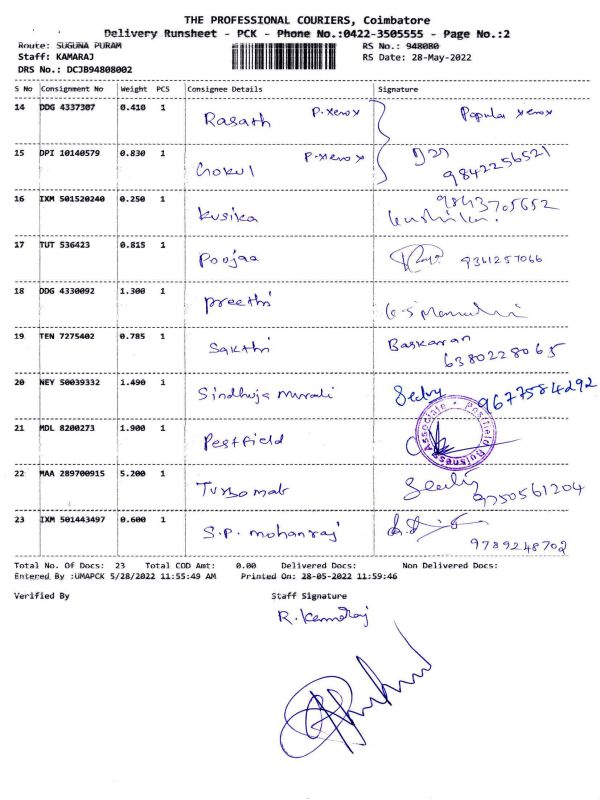 THE PROFESSIONAL COURIERS, Coimbatore
Delivery Runsheet - PCK - Phone No.:0422-3505555 - Page No.:2
Route: SUGUNA PURAM RS No.: 948080
Staff: KAMARAJ RS Date: 28-May-2022
DRS No.: DCJB94808002
S No Consignment No Weight PCS Consignee Details Signature
14 DDG 4337307 0.410 1 Rasath P.xerox Popular xerox
15 DPI 10140579 0.830 1 Gokul P.xerox 9842256521
16 IXM 501520240 0.250 1 Kusika 9843705652
17 TUT 536423 0.815 1 Poojaa 9361257066
18 DDG 4330092 1.300 1 Preethi
19 TEN 7275402 0.785 1 Sakthi Baskaran 6380228065
20 NEY 50039332 1.490 1 Sindhuja murali 9677584292
21 MDL 8200273 1.900 1 Pestfield
Pestfield Buisness Associate
22 MAA 289700915 5.200 1 Turbomat 9750561204
23 IXM 501443497 0.600 1 S.P. mohanraj 9789248702
Total No. Of Docs: 23 Total COD Amt: 0.00 Delivered Docs: Non Delivered Docs:
Entered By :UMAPCK 5/28/2022 11:55:49 AM Printed On: 28-05-2022 11:59:46
Verified By Staff Signature
R. Kamaraj